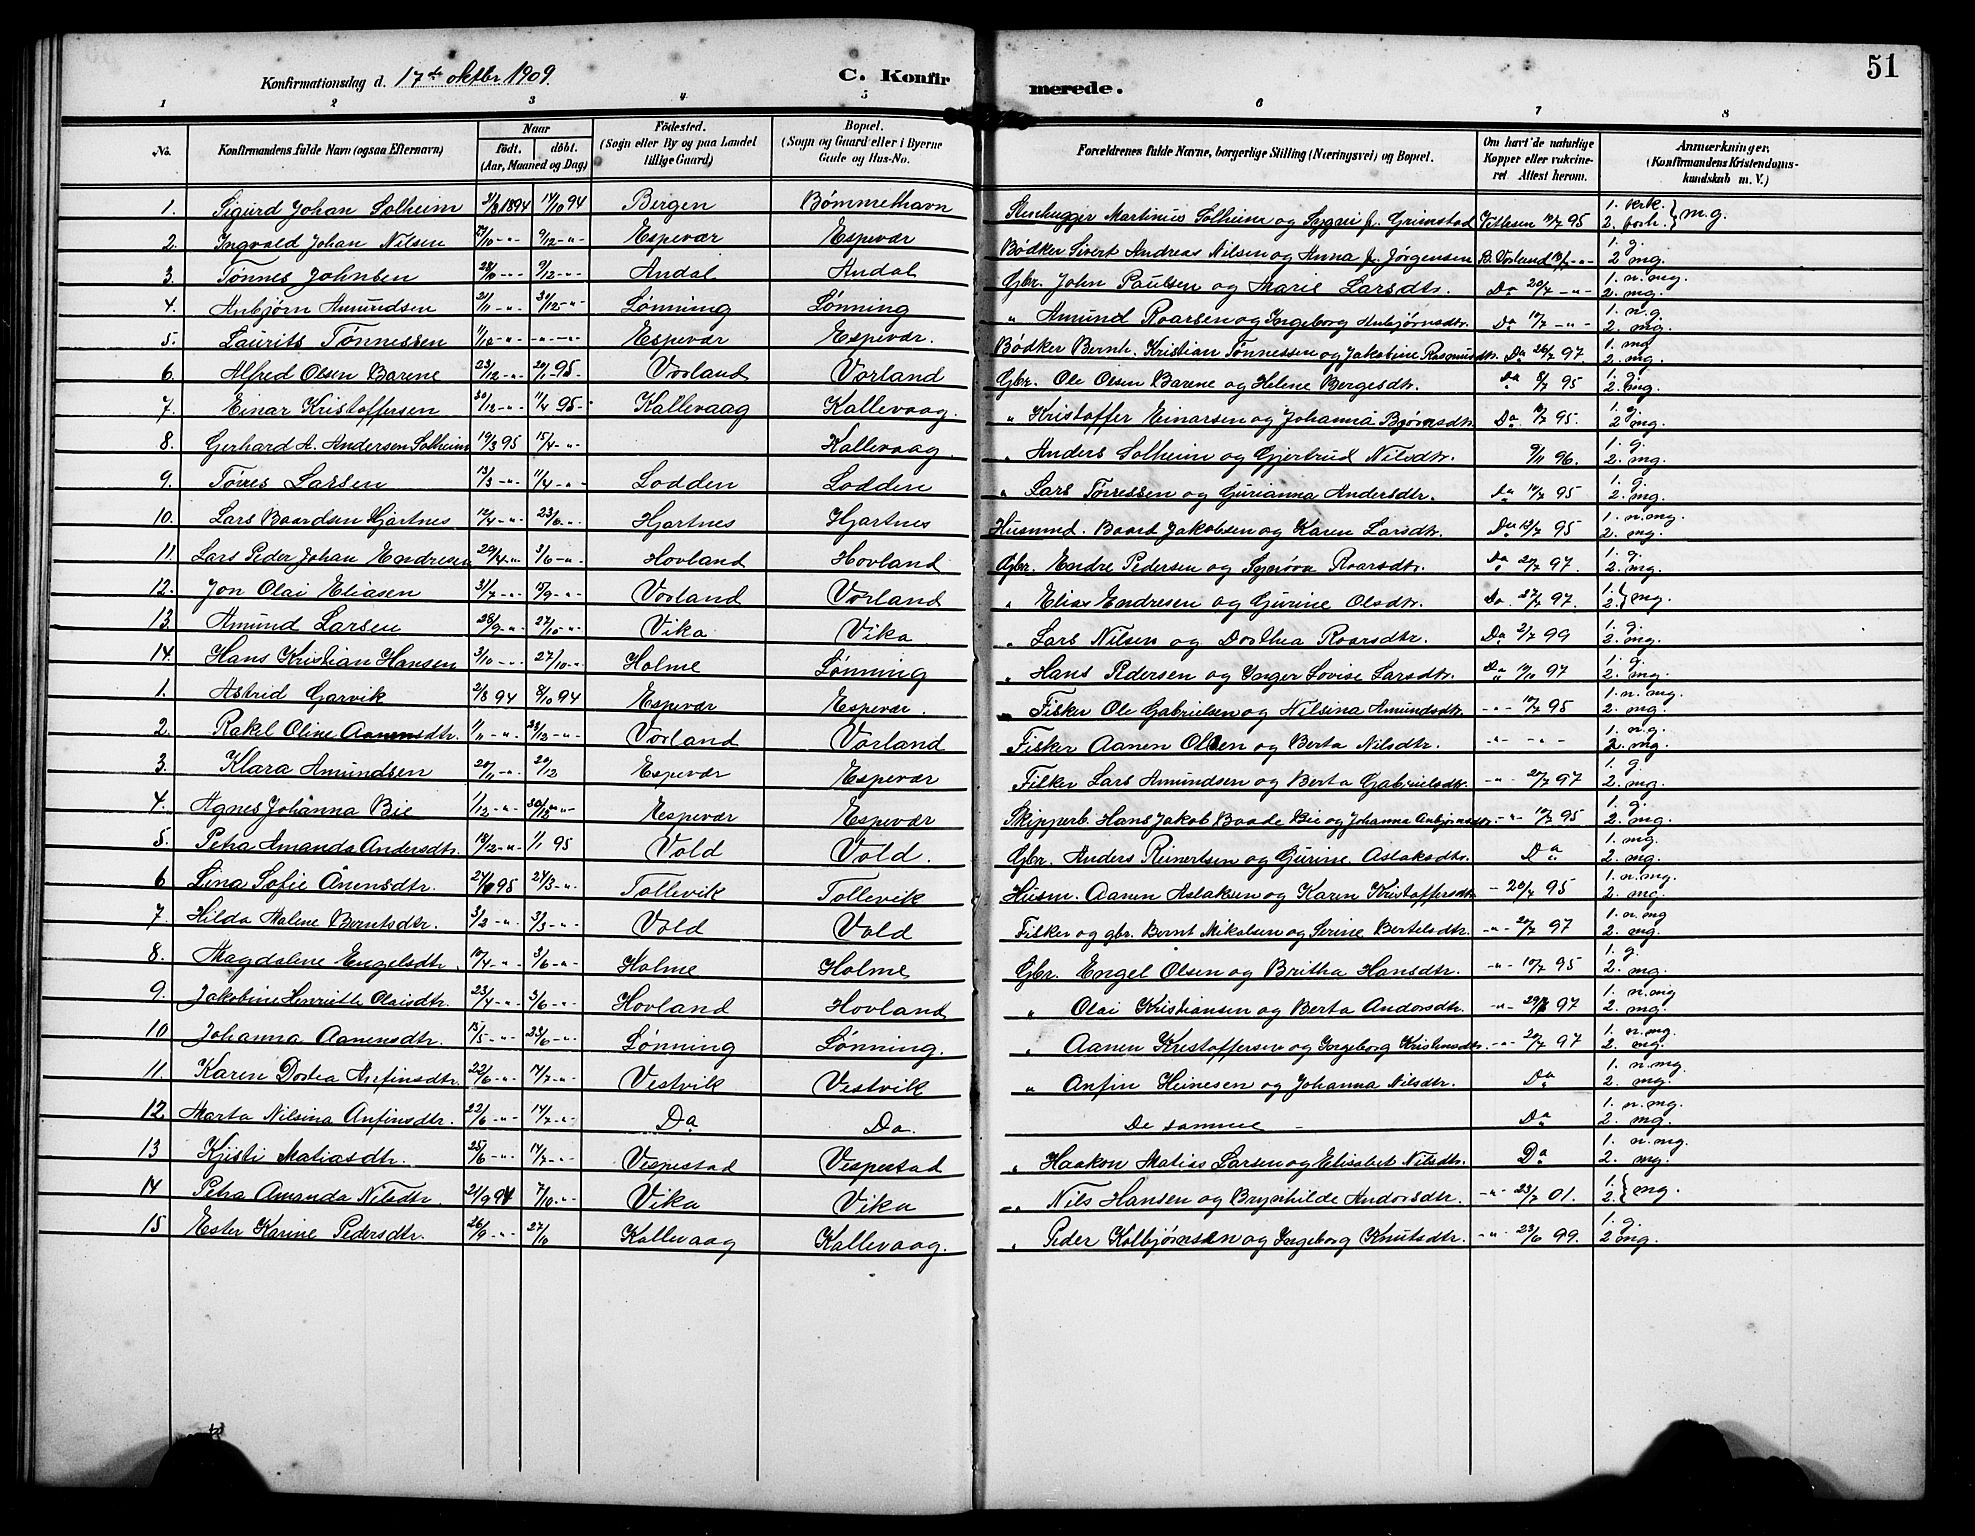 51
Konfirmationsdag d. 17de oktbr 1909. C. Konfirmerede.
1 2 3 4 5 6 7 8
No. Konfirmandens fulde Navn (ogsaa Efternavn) Naar født. døbt. (Aar, Maaned og Dag) Födested. (Sogn eller By og paa Landet tillige Gaard) Bopæl. (Sogn og Gaard eller i Byerne Gade og Hus-No. Forældrenes fulde Navne, borgerlige Stilling (Næringsvei) og Bopæl. Om havt de naturlige Kopper eller vakcineret. Attest herom. Anmærkninger. (Konfirmandens Kristendomskundskab m. V.)
1. Sigurd Johan Solheim 3/8 1894 14/10 94 Bergen Bømmelhavn Stenhugger Martinus Solheim og Sygni f. Grimstad 95 1. kirk. 2. forh. } m.g.
2. Ingvald Johan Nilsen 27/10 -"- 9/12 -"- Espevær Espevær Bødker Sivert Andreas Nilsen og Anna f. Jørgensen 1. g. 2 mg.
3. Tønnes Johnsen 28/10 -"- 9/12 -"- Andal Andal Gbr. John Paulsen og Marie Larsdtr. Do 20/7 -"- 1. n. mg. 2. mg.
4. Anbjørn Amundsen 21/11 -"- 30/12 -"- Lønning Lønning " Amund Roarsen og Ingeborg Anbjørnsdtr. Do 10/7 -"- 1. n. g. 2. mg.
5. Laurits Tønnessen 1/12 -"- -"- -"- Espevær Espevær. Bødker Bernh. Kristian Tønnessen og Jakobine Rasmusdtr. Do 26/7 97 1. mg 2. mg.
6. Alfred Olsen Barene 23/12 -"- 20/1 95- Vorland Vorland Gbr. Ole Olsen Barene og Helene Bergesdtr. Do 8/7 95 1. g. 2. mg.
7. Einar Kristoffersen 30/12 -"- 11/4 95- Kallevaag Kallevaag. " Kristoffer Einarsen og Johanna Bjørnsdtr. Do. 10/7 95. 1. g. 2 mg.
8. Gerhard A. Andersen Solheim 19/3 95 15/4 -"- Kallevaag " Anders Solheim og Gjertrud Nilsdtr. 9/11 96. 1. g. 2. mg.
9. Tørres Larsen 13/3 -"- 11/4 -"- Lodden Lodden " Lars Tørressen og Gurianna Andersdtr. Do 10/7 95 1. g. 2. mg.
10. Lars Baardsen Hjartnes 12/4 -"- 23/6 -"- Hjartnes Hjartnes Husmd. Baard Jakobsen og Karen Larsdtr. Do 10/7 95 1. n. mg. 2. mg.
11. Lars Peder Johan Endresen 29/4 -"- 3/6 -"- Hovland Hovland Gbr. Endre Pedersen og Synnøva Roarsdtr. Do 27/7 97. 1. g. 2. mg.
12. Jon Olai Eliasen 31/7 -"- 15/9 -"- Vorland Vorland " Elias Endresen og Gurine Olsdtr. Do. 27/7 97. 1. 2. } mg.
13. Amund Larsen 28/9 -"- 27/10 -"- Vika Vika " Lars Nilsen og Dorthea Roarsdtr. Do 2/7 99 1. g. 2. mg.
14. Hans Kristian Hansen 3/10 -"- 27/10 -"- Holme Lønning " Hans Pedersen og Inger Lovise Larsdtr. Do 19/10 97 1. g. 2. mg.
1. Astrid Garvik 2/8 94 8/10 94 Espevær Espevær. Fisker Ole Gabrielsen og Nilsina Amundsdtr. -"- 10/7 95 1. n. mg. 2. mg.
2. Rakel Oline Aanensdtr. 1/11 -"- 23/12 -"- Vorland Vorland Fisker Aanen Olsen og Berta Nilsdtr. -"- -"- 1. n. g. 2. mg.
3. Klara Amundsen 20/11 -"- 20/12 Espevær Espevær Fisker Lars Amundsen og Berta Gabrielsdtr. -"- 20/7 97 1. g. 2. mg.
4. Agnes Johanna Bie 1/12 -"- 30/12 -"- Espevær Espevær Skipperb. Hans Jakob Baade Bie og Johanna Anbjørnsdtr. -"- 10/7 95 1. g. 2. mg.
5. Petra Amanda Andersdtr. 18/12 -"- 1/1 95 Vold Vold. Gbr. Anders Reinertsen og Gurine Aslaksdtr. Do 1. mg. 2. mg.
6 Lina Sofie Ånensdtr. 24/3 -"- Tollevik Tollevik Husm. Aanen Aslaksen og Karen Kristoffersdtr. - 20/7 95 1. n. mg. 2. mg.
7. Hilda Malene Berntsdtr. 3/2 -"- 3/3 -"- Vold Vold Fisker og gbr. Bernt Mikalsen og Serine Bertelsdtr. -"- 20/7 97 1. n. mg 2. mg.
8. Magdalene Engelsdtr. 17/4 -"- 3/6 -"- Holme Holme Gbr. Engel Olsen og Britha Hansdtr. -"- 10/7 95 1. g. 2. mg.
9. Jakobine Henriette Olaisdtr. 23/4 -"- 3/6 -"- Hovland Hovland " Olai Kristiansen og Berta Andorsdtr. -"- 29/7 97 1. n. mg 2. mg.
10. Johanna Aanensdtr. 15/5 -"- 23/6 -"- Lønning Lønning. " Aanen Kristoffersen og Ingeborg Kristensdtr. -"- 20/7 97 1. n. mg. 2. mg.
11. Karen Dortea Anfinsdtr. 22/6 -"- 14/7 -"- Vestvik Vestvik " Anfin Heinesen og Johanna Nilsdtr. Do 1. n. mg. 2. mg.
12. Marta Nilsina Anfinsdtr. 22/6 -"- 14/7 -"- Do Do. De samme - Do 1. n. mg. 2. mg.
13 Kjisti Matiasdtr. 25/6 -"- 14/7 -"- Vespestad Vespestad " Haakon Matias Larsen og Elisabet Nilsdtr. Do 1. n. mg. 2. mg.
14 Petra Amanda Nilsdtr. 21/9 94 7/10 -"- Vika Vika " Nils Hansen og Brynhilde Andorsdtr. -"- 23/7 01. 1. 2. } mg.
15 Ester Karine Pedersdtr. 26/9 -"- 27/10 Kallevaag Kallevaag. " Peder Kolbjørnsen og Ingeborg Knutsdtr. -"- 99. 1. g. 2 mg.